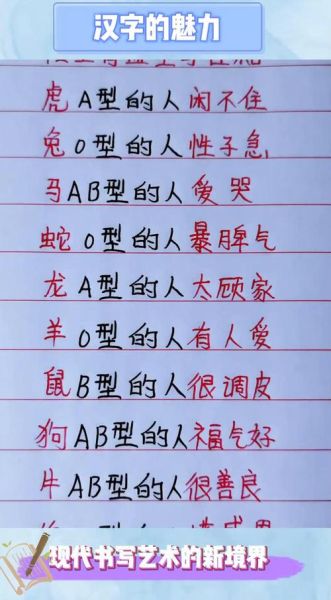 汉字的魅力
虎A型的人闲不住
兔O型的人性子急
马AB型的人爱哭
蛇O型的人暴脾气
龙A型的人太顾家
羊O型的人有人爱
鼠B型的人很调皮
狗AB型的人福气好
牛AB型的人很善良
现代书写艺术的新境界